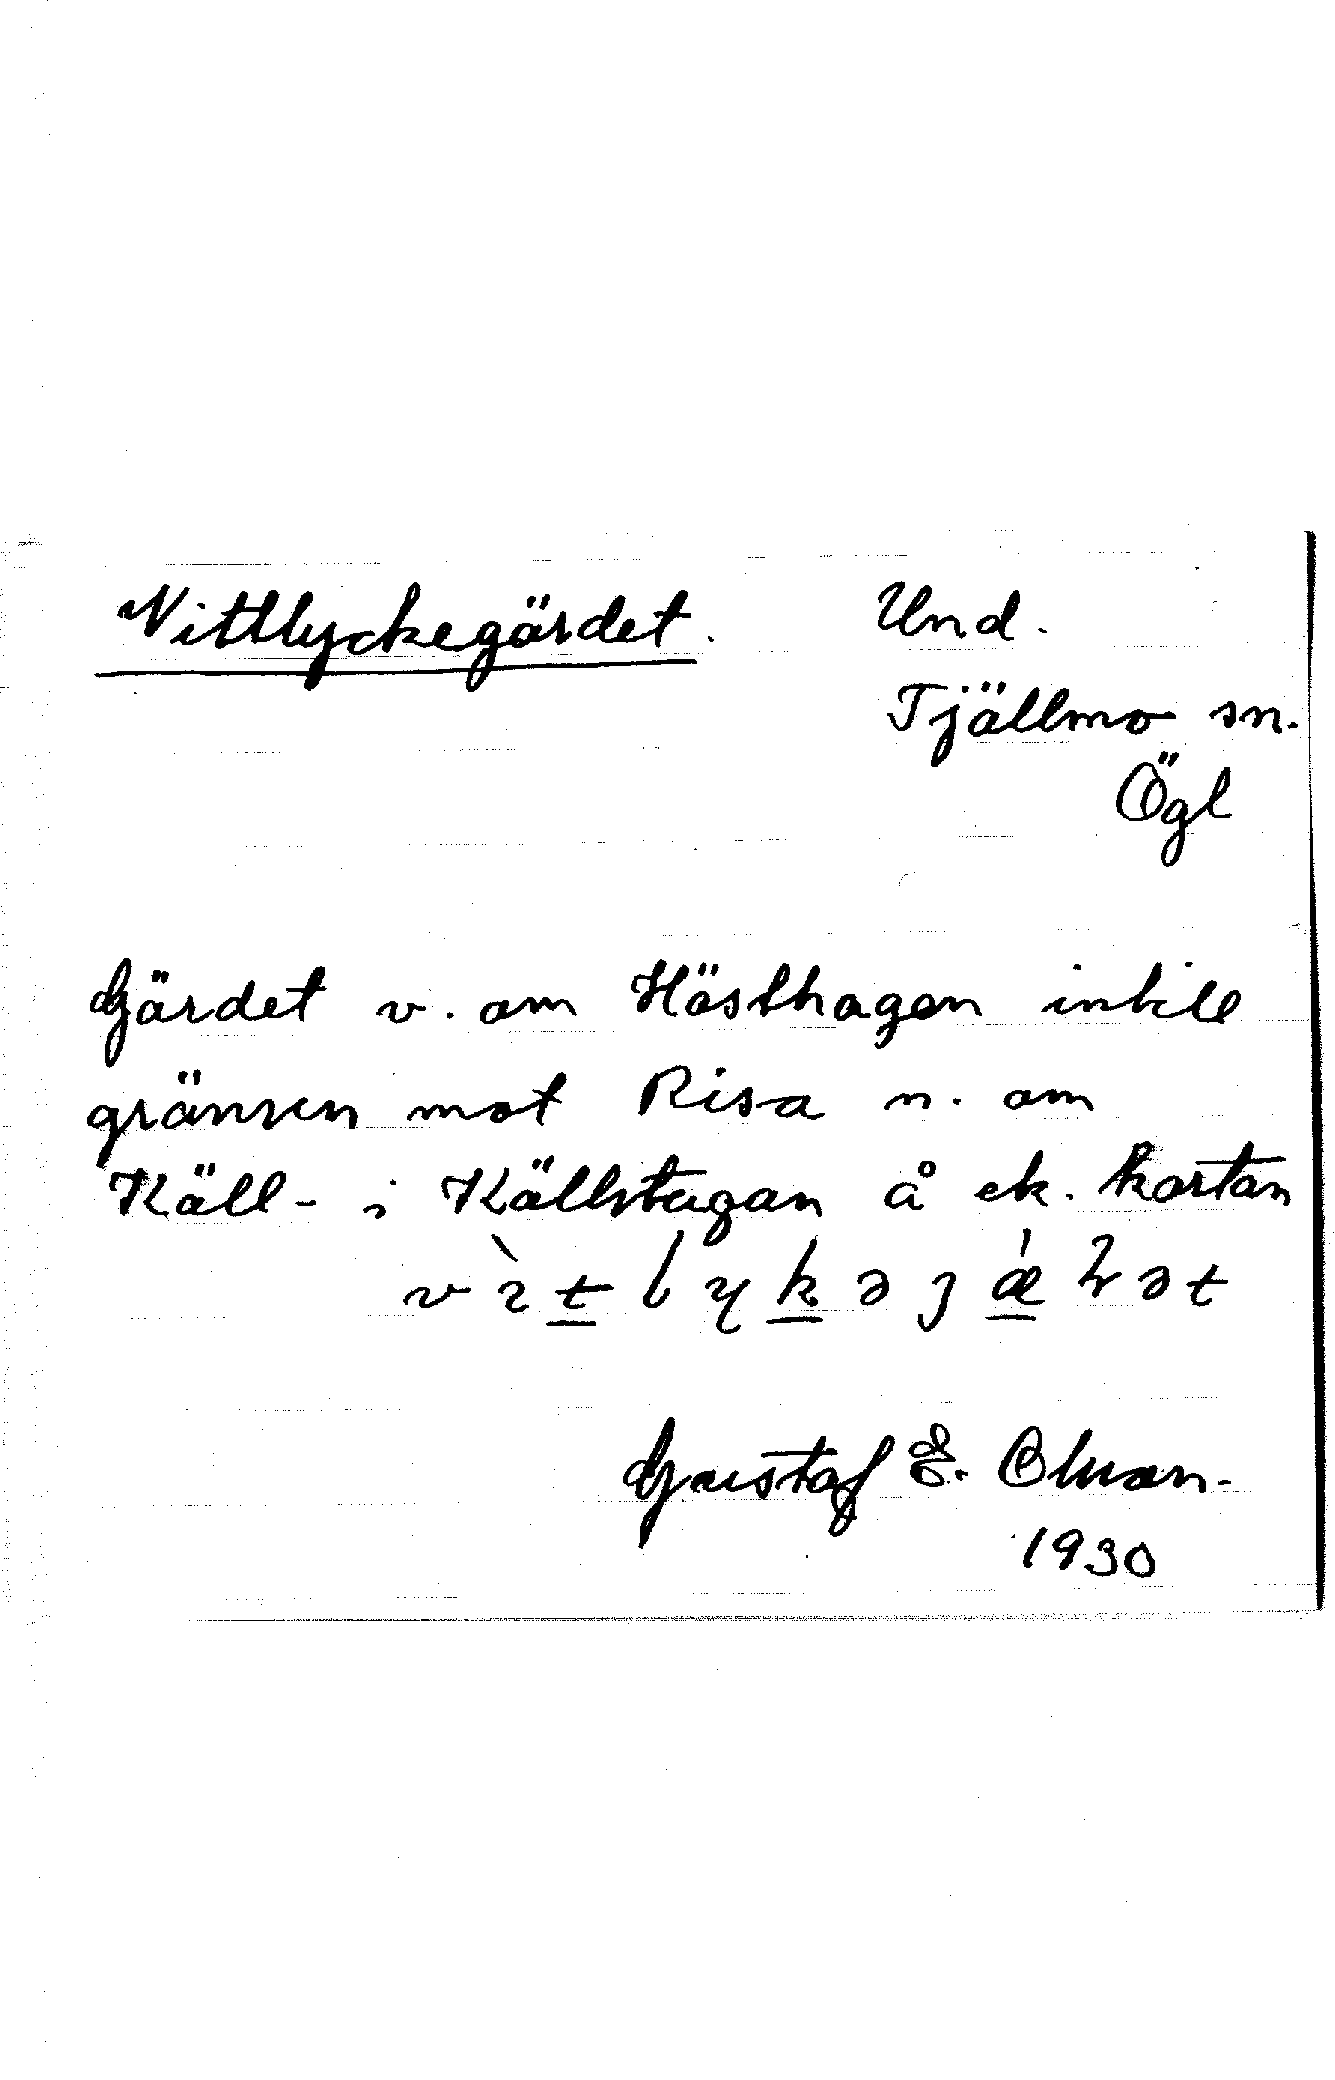 Vittlyckegärdet. Und.
Tjällmo sn.
Ögl
Gärdet v. om Hästhagen intill
gränsen mot Risa n. om
Käll- i Källstugan å ek. kartan
Gustaf E. Olsson.
1930